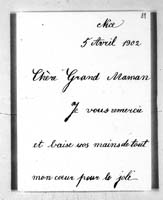 Nice
5 Avril 1902
Chère Grand Maman
Je vous remercie
et baise vos mains de tout
mon cœur pour le joli